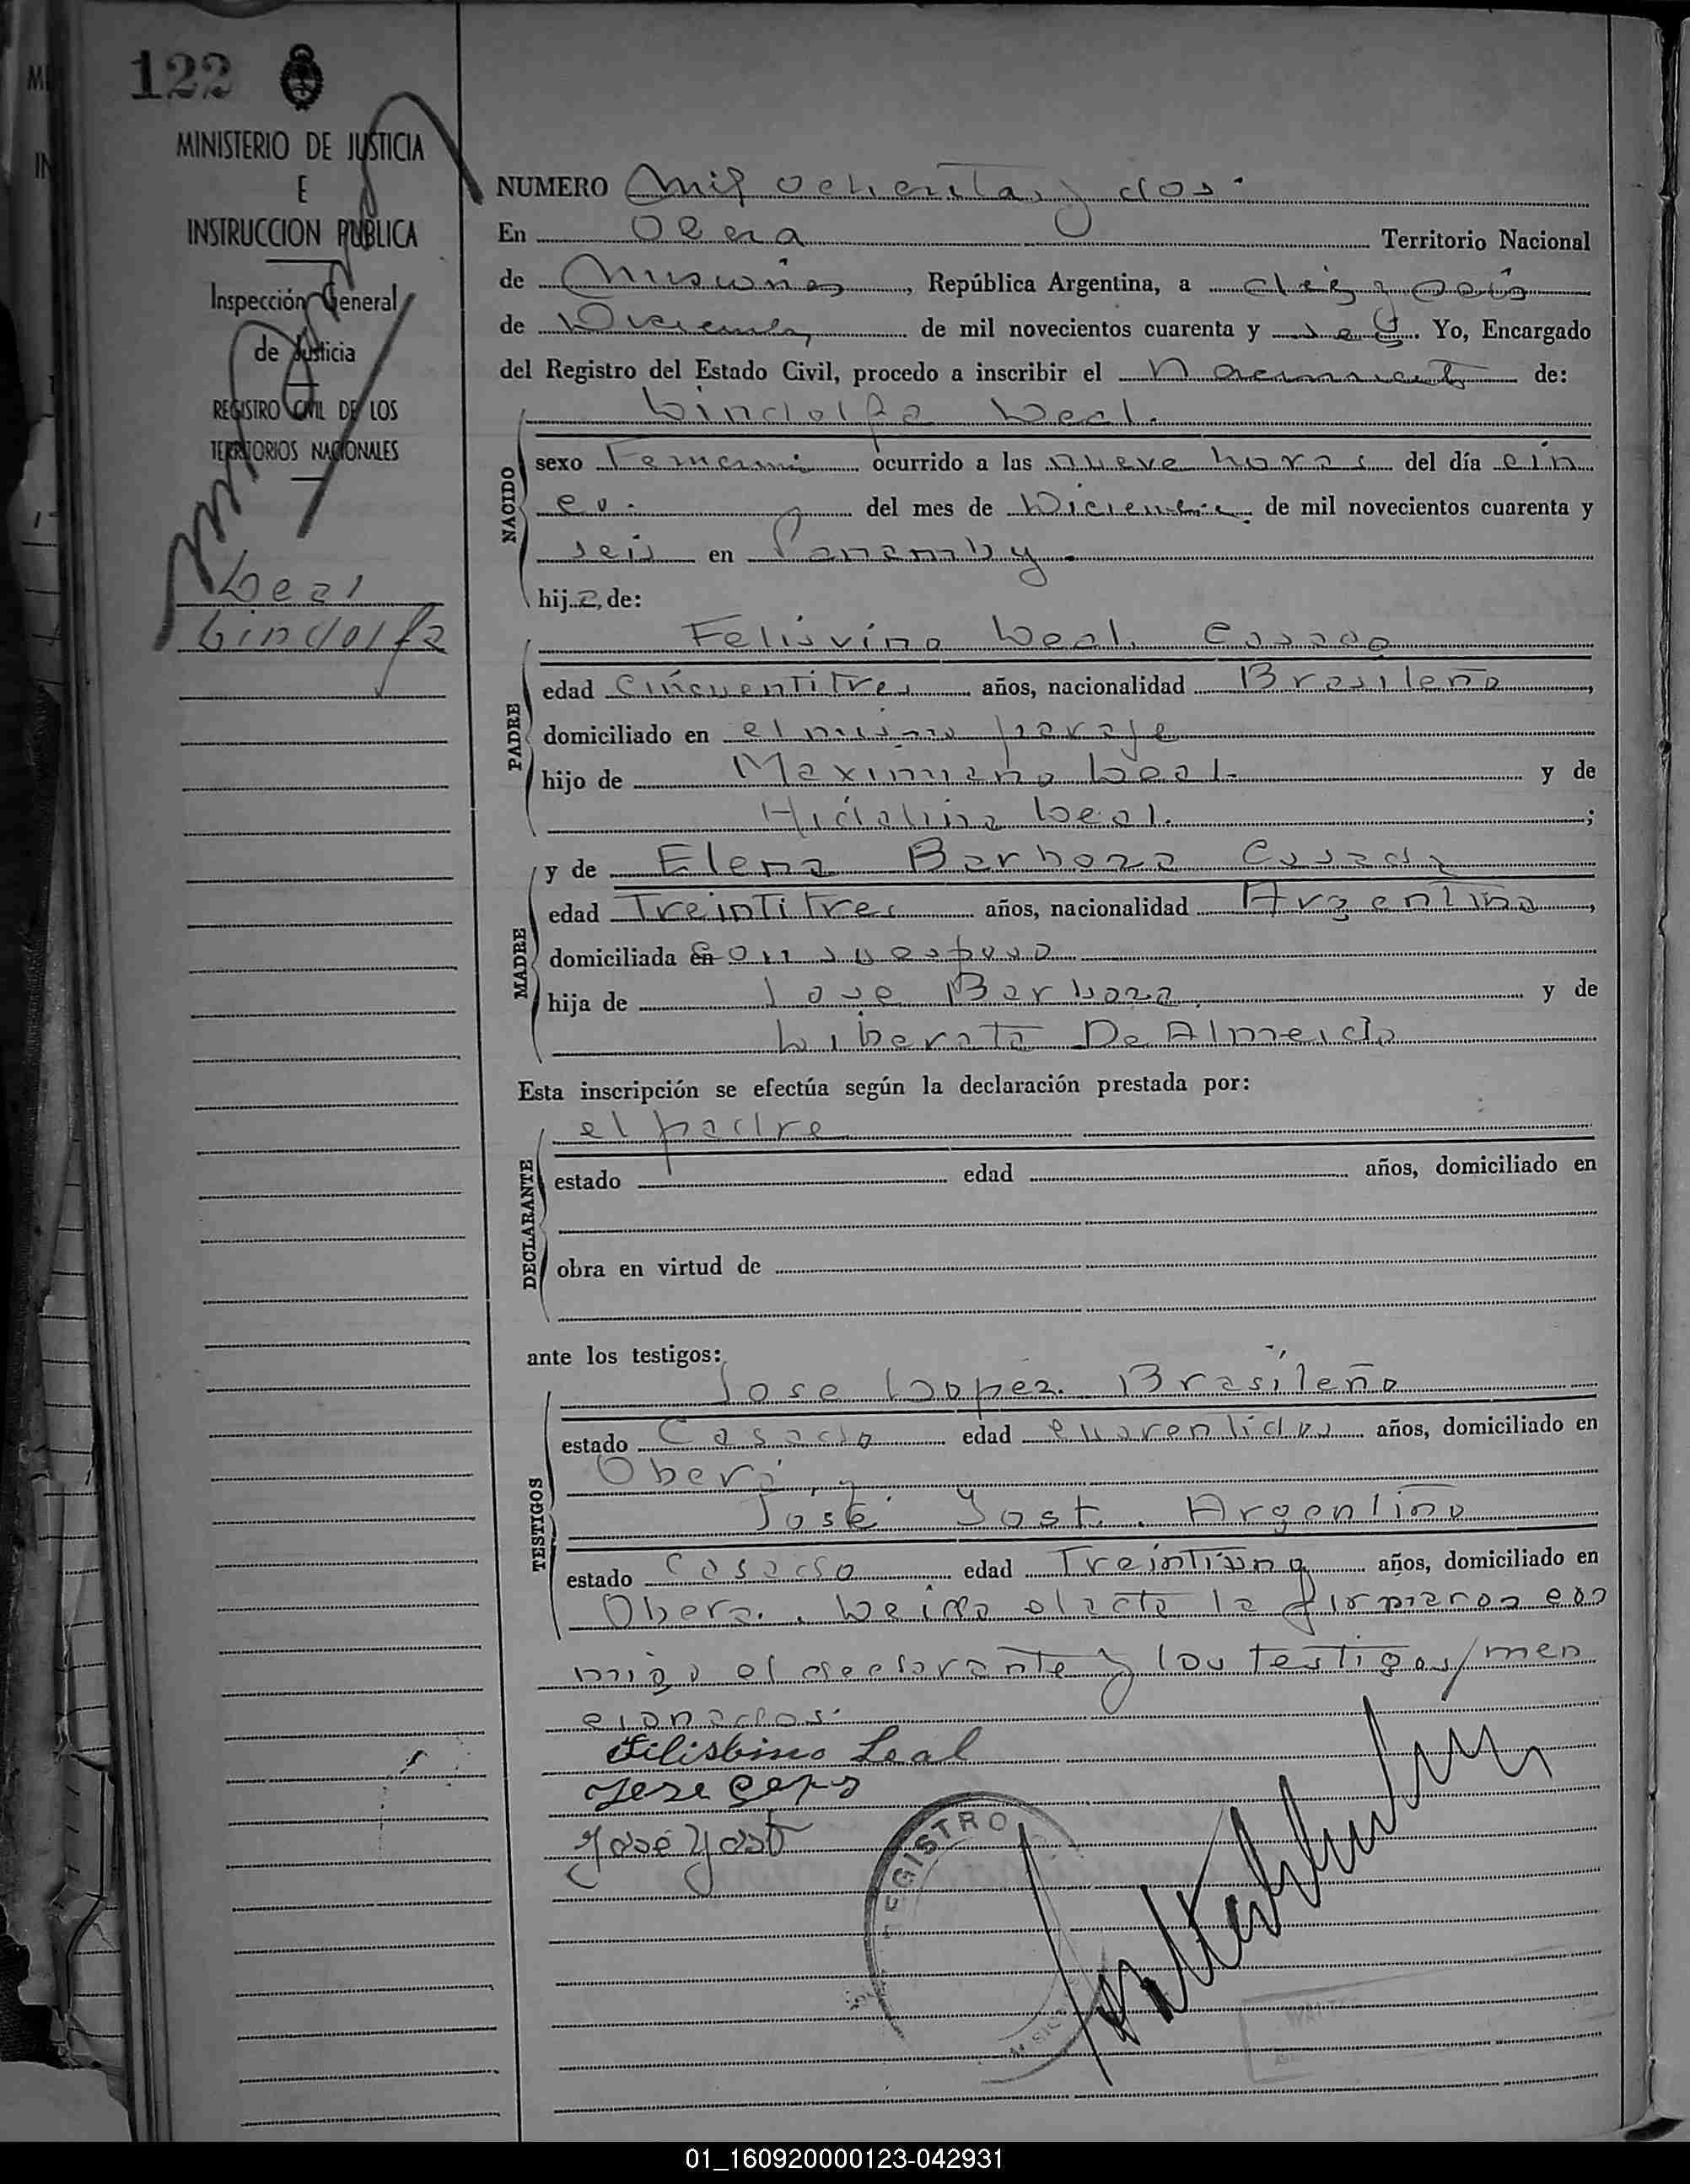 122
MINISTERIO DE JUSTICIA
E
INSTRUCCION PUBLICA
Inspección General
de Justicia
REGISTRO CIVIL DE LOS
TERRITORIOS NACIONALES
Leal
Lindolfa
NUMERO mil ochenta y dos.
En Obera Territorio Nacional
de Misiones, República Argentina, a diez y seis
de Diciembre de mil novecientos cuarenta y seis. Yo, Encargado
del Registro del Estado Civil, procedo a inscribir el Nacimiento de:
Lindolfa Leal.
NACIDO
sexo Femenino ocurrido a las nueve horas del día cin
co. del mes de Diciembre de mil novecientos cuarenta y
seis en Panamby.
hija, de:
PADRE
Felisvino Leal. Casado
edad Cincuentitres años, nacionalidad Brasileño,
domiciliado en el mismo paraje
hijo de Maximiano Leal. y de
Hidalina Leal. ;
MADRE
y de Elena Barboza Casada
edad Treintitres años, nacionalidad Argentina,
domiciliada en con su esposo
hija de Jose Barboza y de
Liberata De Almeida
Esta inscripción se efectúa según la declaración prestada por:
DECLARANTE
el padre
estado edad años, domiciliado en
obra en virtud de
ante los testigos:
TESTIGOS
Jose Lopez. Brasileño
estado Casado edad cuarentidos años, domiciliado en
Oberá y
José Yost. Argentino
estado Casado edad Treintiuno años, domiciliado en
Obera. Leida el acta la firmaron con
migo el declarante y los testigos men
cionados.
Filisbino Leal
José Yost
REGISTRO
01_160920000123-042931